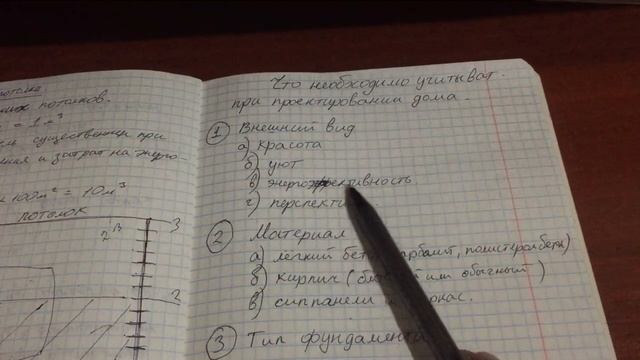 потолка
потолков.
= 1 м³
существенна при
и затрат на энерго-
100м² = 10м³
ПОТОЛОК
3
2
Что необходимо учитыват.
при проектировании дома.
1 Внешний вид
а) красота
б) уют
в) энергоэффективность
г)
2 Материал
а) лёгкий полистиролбетон)
б) кирпич ( или обычный )
в) сиппанели
3 Тип фундамента